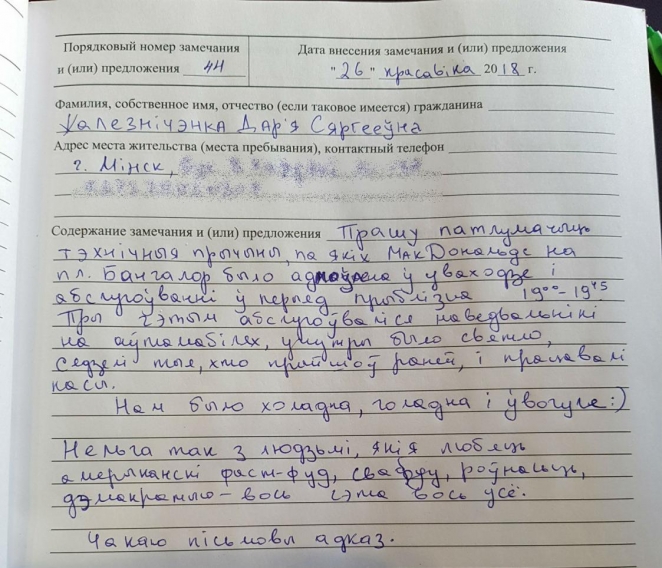 Порядковый номер замечания
и (или) предложения 44
Дата внесения замечания и (или) предложения
"26" красавіка 2018 г.
Фамилия, собственное имя, отчество (если таковое имеется) гражданина
Халезнічэнка Дар'я Сяргееўна
Адрес места жительства (места пребывания), контактный телефон
г. Мінск,
Содержание замечания и (или) предложения Прашу патлумачыць
тэхнічныя прычыны, па якіх МакДональдс на
пл. Бангалор было адмоўлена ў уваходзе і
абслугоўванні ў перыяд прыблізна 19⁰⁰-19⁴⁵
Пры гэтым абслугоўваліся наведвальнікі
на аўтамабілях, унутры было святло,
сядзелі тыя, хто прыйшоў раней, і працавалі
касы.
Нам было холадна, голадна і ўвогуле :)
Нельга так з людзьмі, якія любяць
амерыканскі фаст-фуд, свабоду, роўнасьць,
дэмакратыю - вось гэта вось усё.
Чакаю пісьмовы адказ.